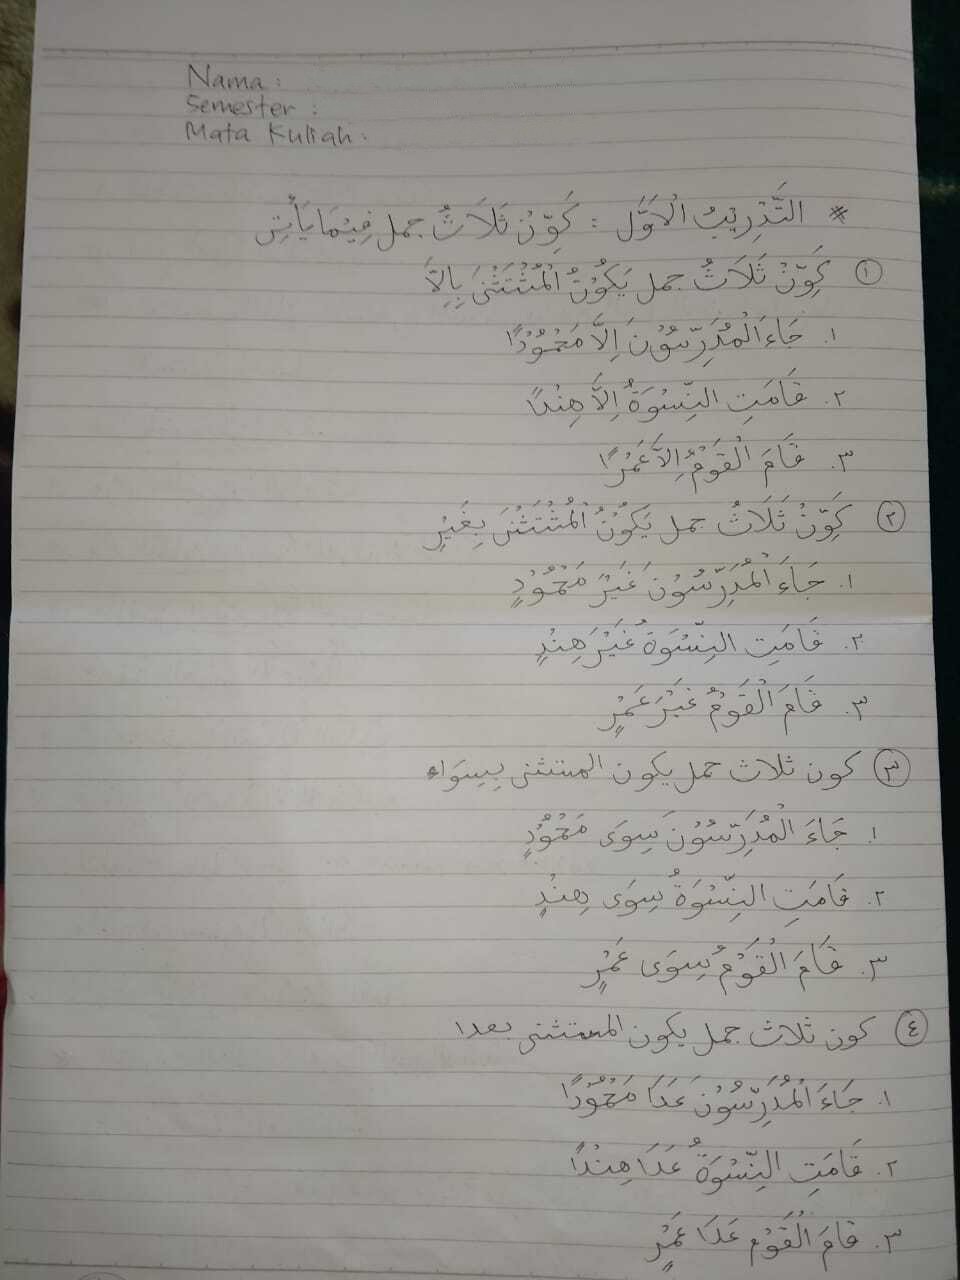 Nama :
Semester :
Mata Kuliah :
* التَّدْرِيْبُ الْاَوَّل : كَوِّنْ ثَلَاثُ جمل فِيْمَا يَأْتِى
١ كَوِّنْ ثَلَاثُ جمل يَكُوْنُ الْمُثْتَثْنَى بِاِلَّا
١. جَاءَ الْمُدَرِّسُوْنَ اِلَّا مَحْمُوْدًا
٢. قَامَتِ النِّسْوَةُ اِلَّا هِنْدًا
٣. قَامَ الْقَوْمُ اِلَّا عَمْرًا
٢ كَوِّنْ ثَلَاثُ جمل يَكُوْنُ الْمُثْتَثْنَى بِغَيْرِ
١. جَاءَ الْمُدَرِّسُوْنَ غَيْرَ مَحْمُوْدٍ
٢. قَامَتِ النِّسْوَةُ غَيْرَ هِنْدٍ
٣. قَامَ الْقَوْمُ غَيْرَ عَمْرٍ
٣ كون ثلاث جمل يكون المستثنى بِسِوَاء
١. جَاءَ الْمُدَرِّسُوْنَ سِوَى مَحْمُوْدٍ
٢. قَامَتِ النِّسْوَةُ سِوَى هِنْدٍ
٣. قَامَ الْقَوْمُ سِوَى عَمْرٍ
٤ كون ثلاث جمل يكون المستثنى بعدا
١. جَاءَ الْمُدَرِّسُوْنَ عَدَا مَحْمُوْدًا
٢. قَامَتِ النِّسْوَةُ عَدَا هِنْدًا
٣. قَامَ الْقَوْمُ عَدَا عَمْرٍ